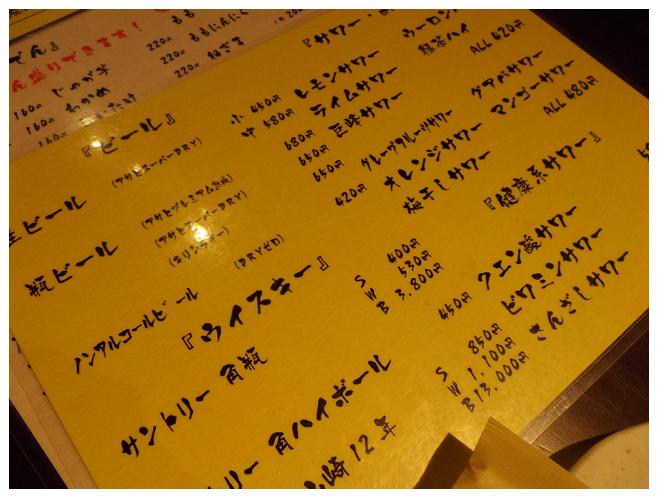 でん』
ん盛りできます!
160円 じゃが芋
160円 わかめ
160円
220円 もも
220円 ももにんにく
220円 ねぎま
『ビール』
生ビール (アサヒスーパーDRY) 小 450円
中 580円
瓶ビール (アサヒプレミアム熟成) 680円
(アサヒスーパーDRY) 650円
(キリンラガー) 650円
ノンアルコールビール (DRYゼロ) 420円
『ウイスキー』
サントリー 角瓶 S 400円
W 530円
B 3.800円
トリー 角ハイボール 450円
山崎12年 S 850円
W 1.100円
B 13.000円
『サワー・
レモンサワー
ライムサワー
巨峰サワー
グレープフルーツサワー
オレンジサワー
梅干しサワー
ウーロン
緑茶ハイ
ALL 420円
グアバサワー
マンゴーサワー
ALL 480円
『健康系サワー』
クエン酸サワー
ビタミンサワー
さんざしサワー